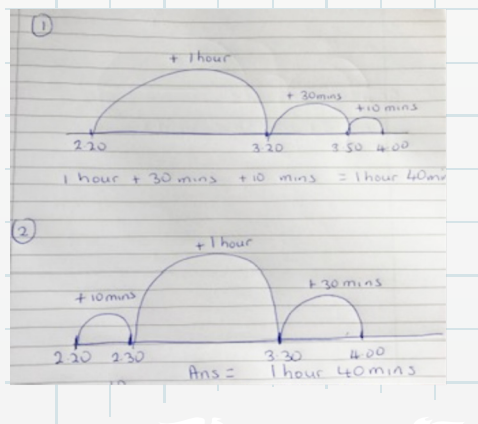 1
+ 1 hour
+ 30 mins
+ 10 mins
2.20 3.20 3.50 4.00
1 hour + 30 mins + 10 mins = 1 hour 40 mi
2
+ 1 hour
+ 10 mins
+ 30 mins
2.20 2.30 3.30 4.00
Ans = 1 hour 40 mins